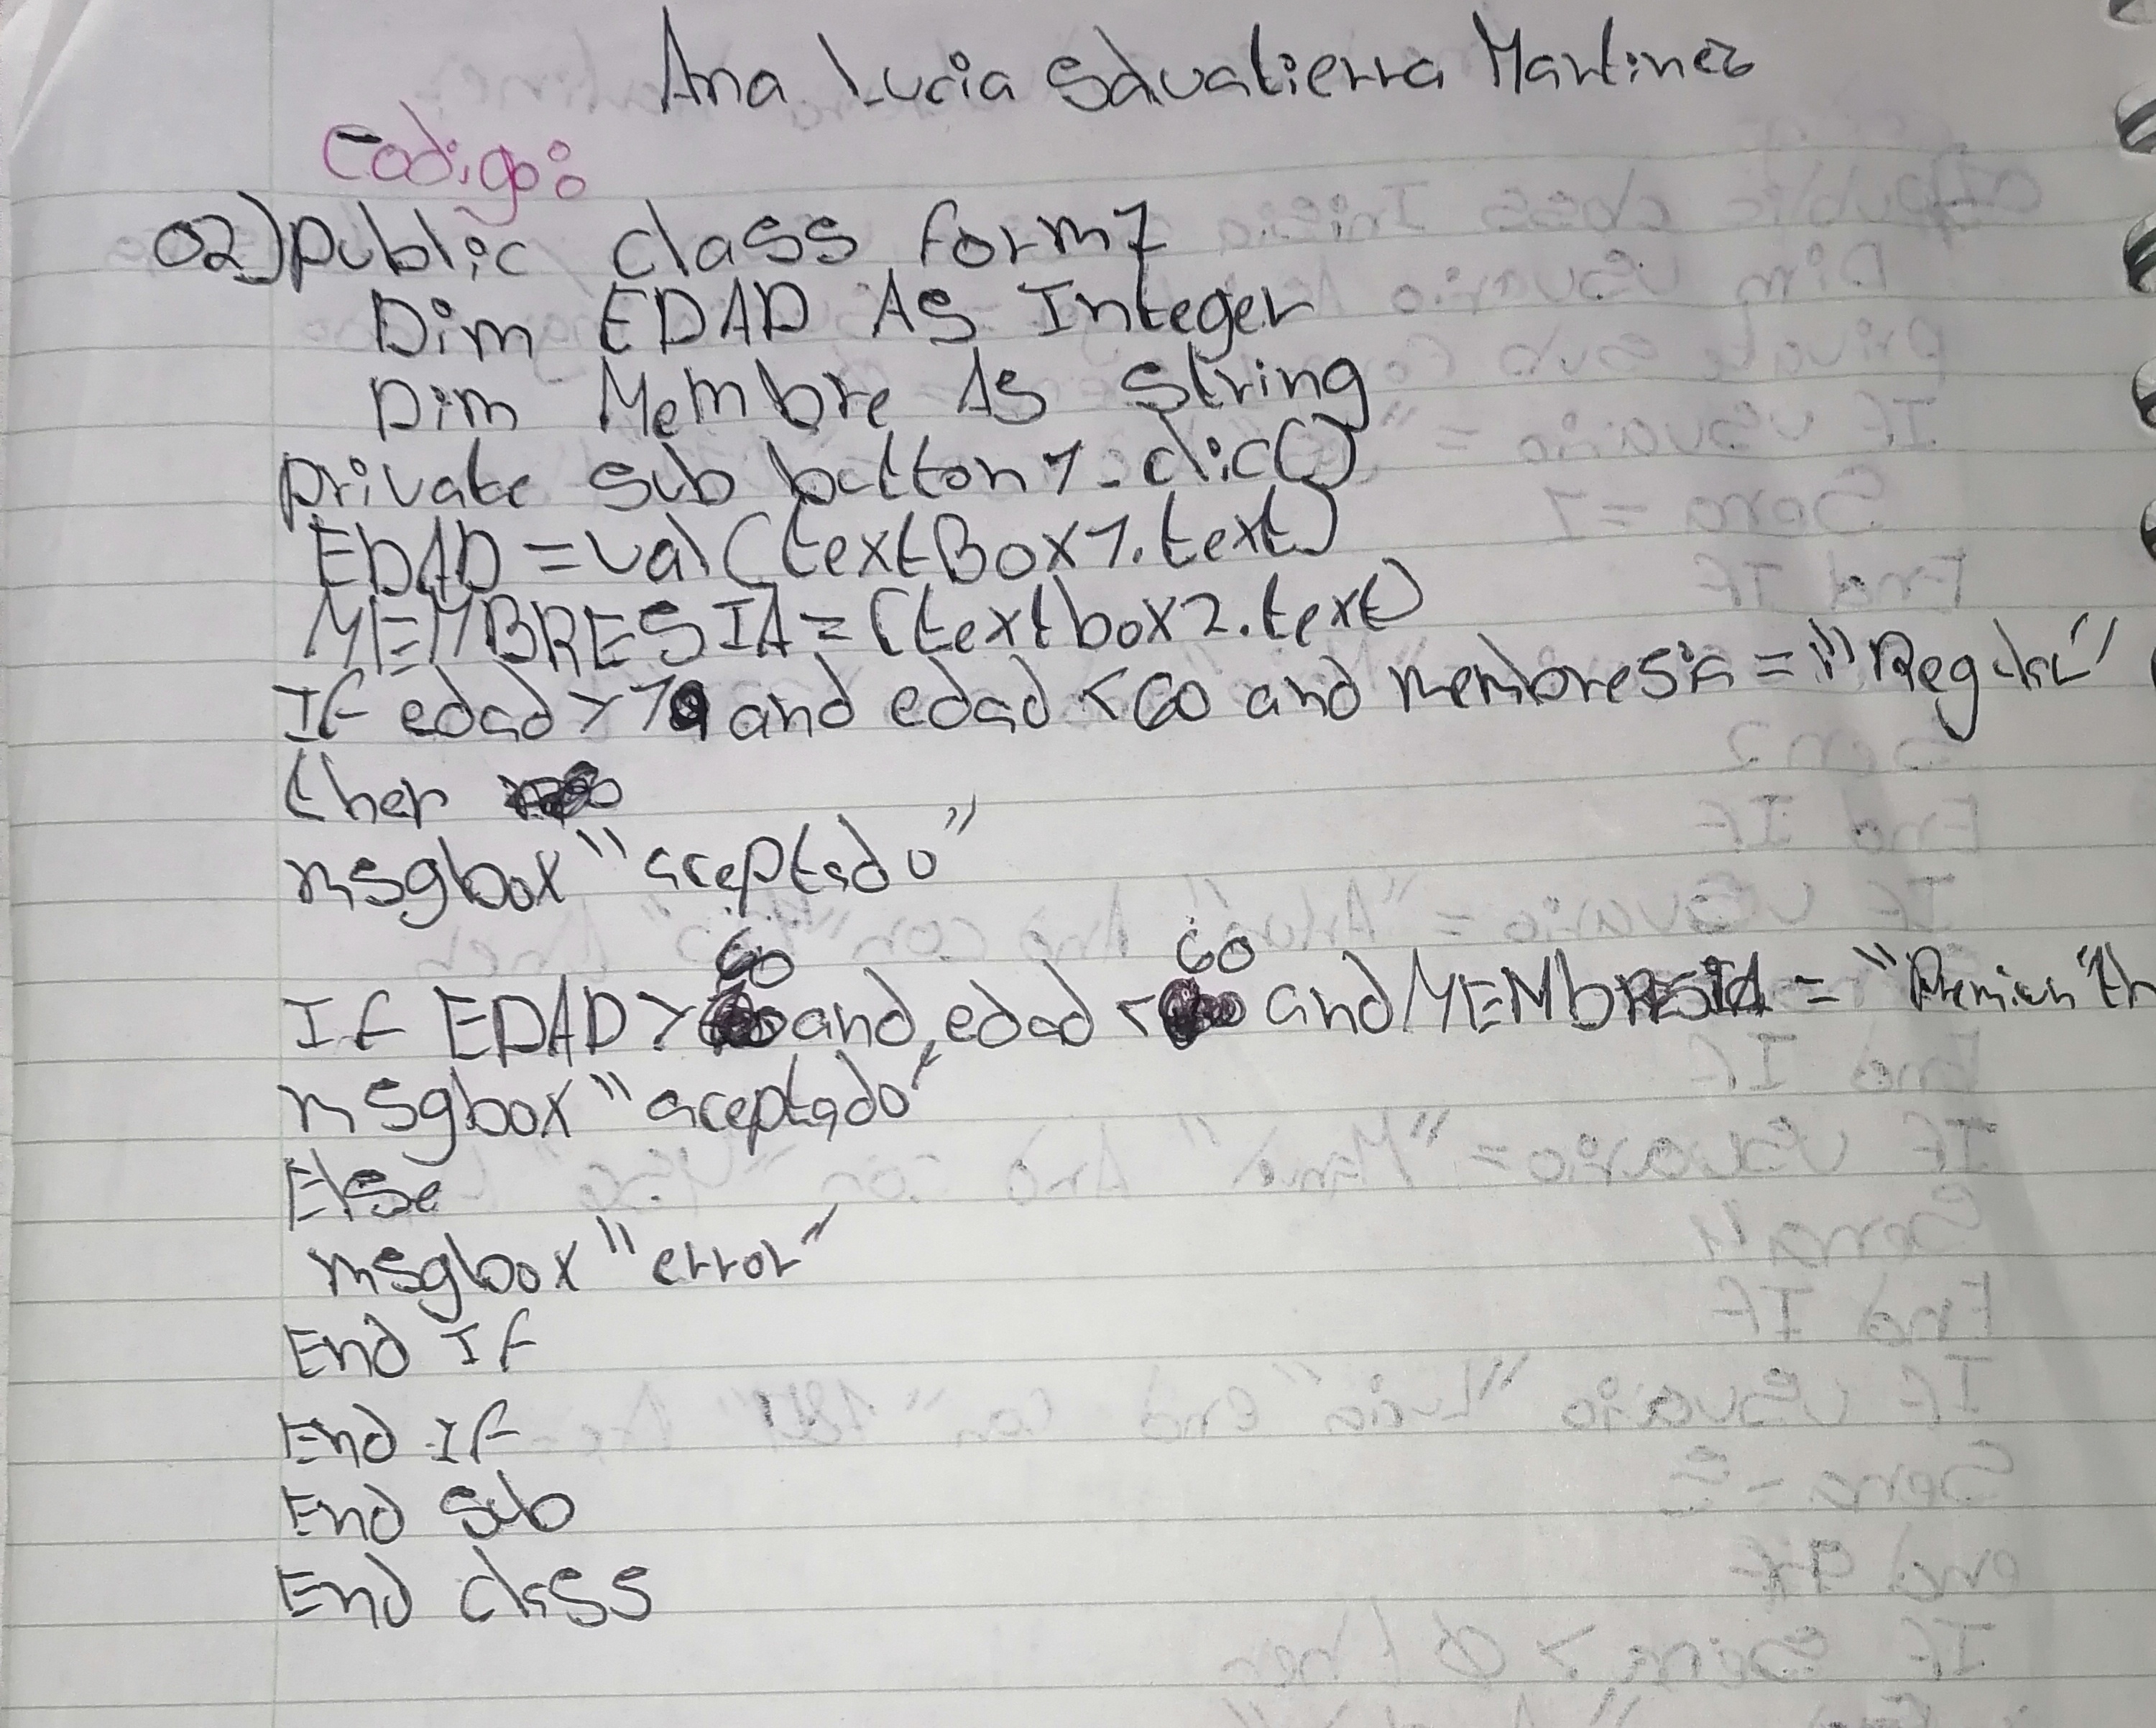 Ana Lucia Salvatierra Martinez
Codigo:
02) public class form1
Dim EDAD As Integer
Dim Membre As String
private sub button1_clic()
EDAD = val(textBox1.text)
MEMBRESIA = (textbox2.text)
If edad > 19 and edad < 60 and membresia = "Regular"
then
msgbox "aceptado"
60 60
If EDAD > and, edad < and MEMbRESIA = "Premium" th
msgbox "aceptado"
Else
msgbox "error"
End If
End If
End Sub
End class